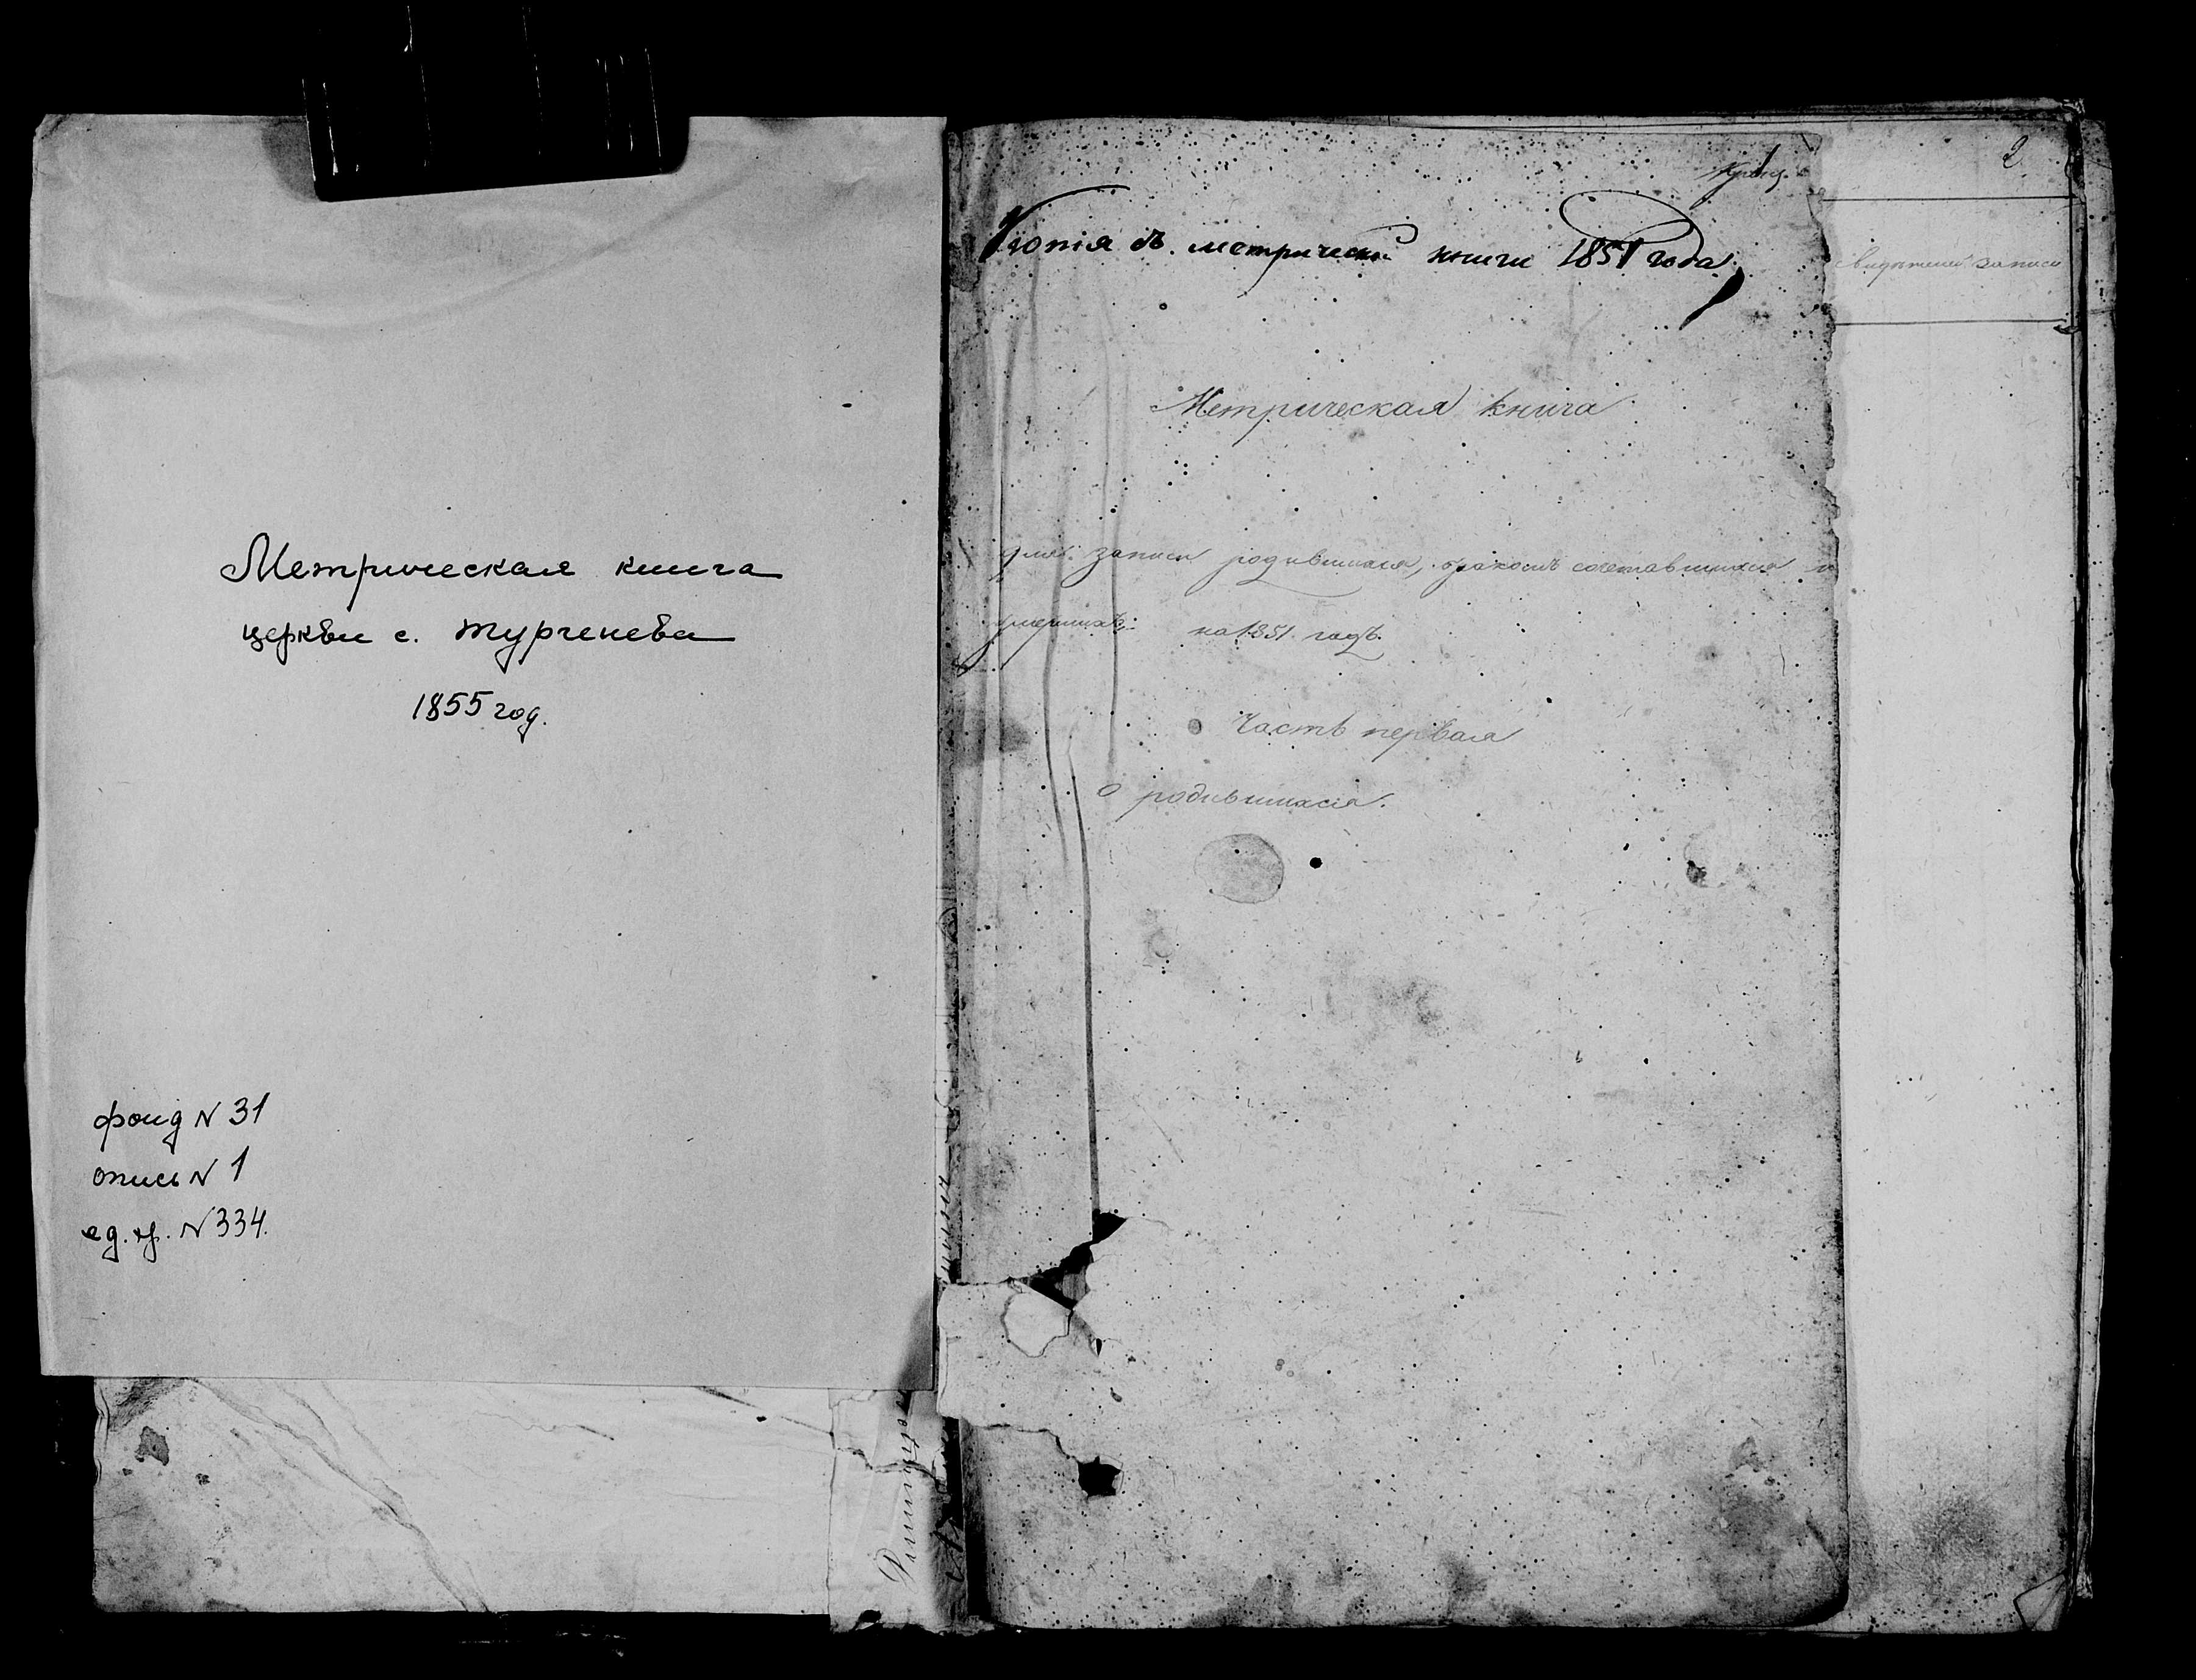 Метрическая книга
церкви с. Тургенева
1855 год.
фонд N 31
опись N 1
ед. хр. N 334.
1
Копія съ. метрической книги 1851 года
Метрическая книга
для записи родившихся, бракомъ сочетавшихся и
умершихъ: на 1851. годъ.
Часть первая
о родившихся.
2.
записи